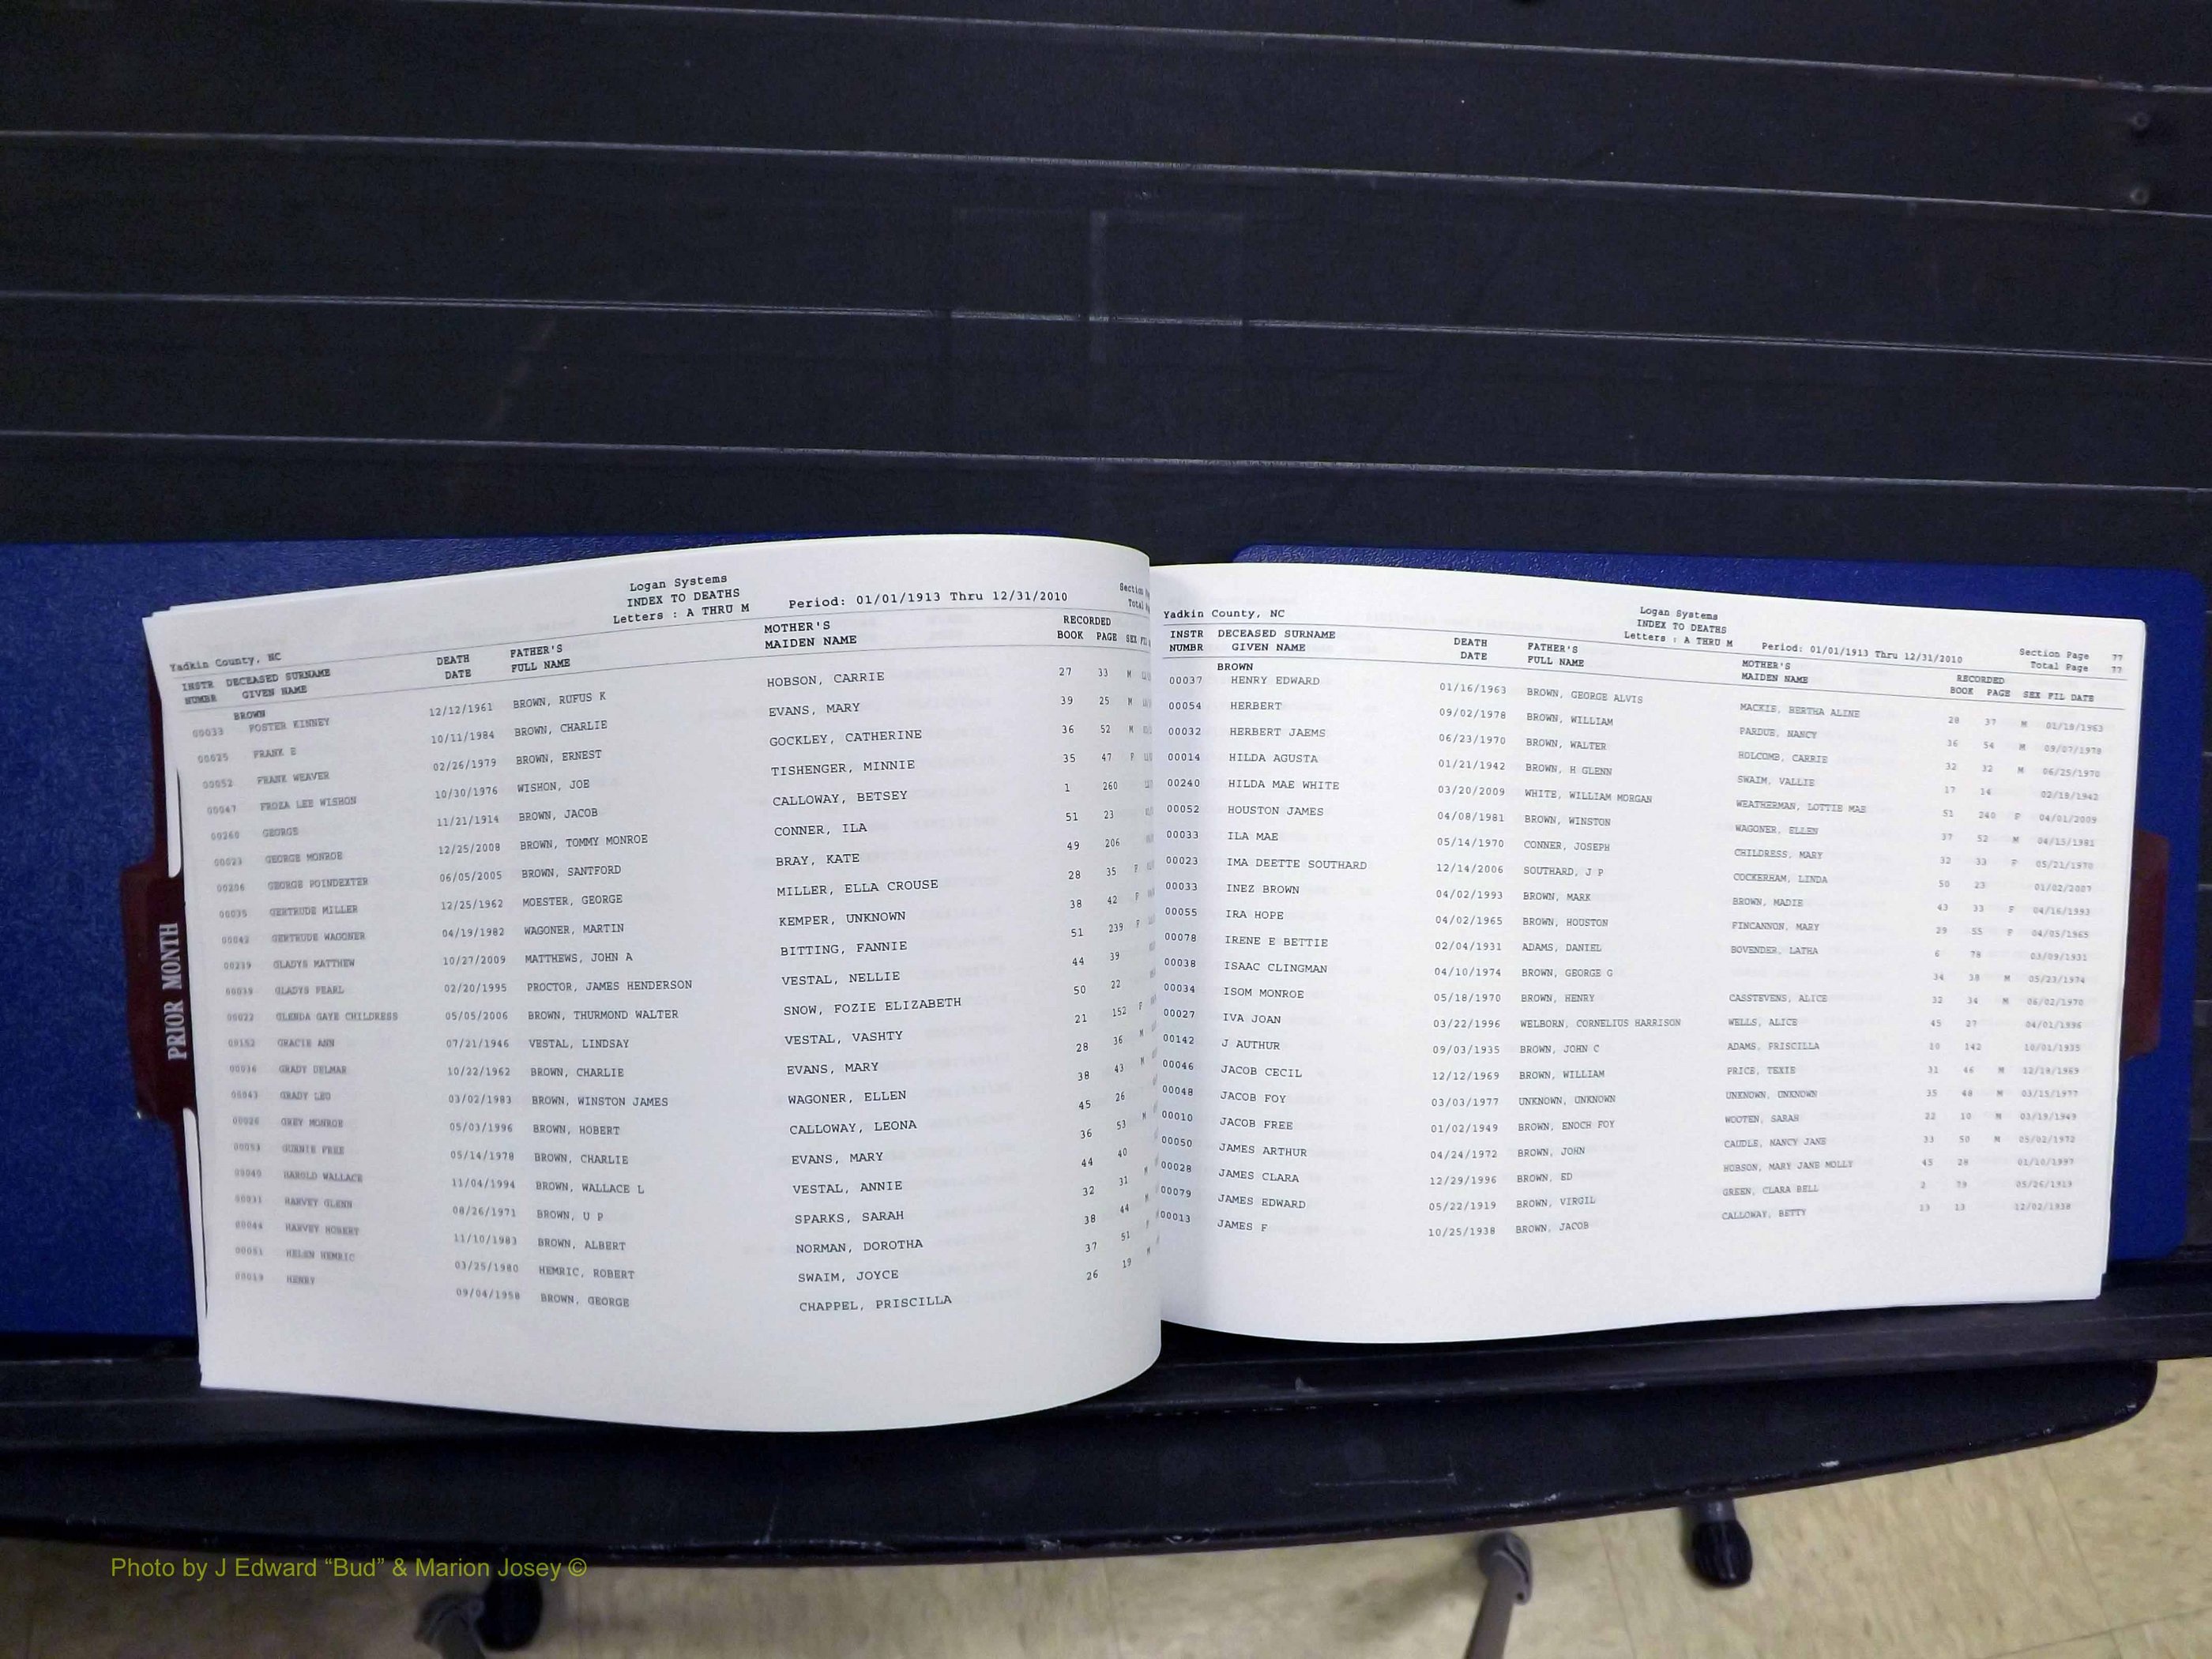 Logan Systems
INDEX TO DEATHS
Yadkin County, NC Letters : A THRU M Period: 01/01/1913 Thru 12/31/2010
INSTR NUMBR DECEASED SURNAME GIVEN NAME DEATH DATE FATHER'S FULL NAME MOTHER'S MAIDEN NAME RECORDED BOOK PAGE SEX
BROWN
00033 FOSTER KINNEY 12/12/1961 BROWN, RUFUS K HOBSON, CARRIE 27 33 M
00025 FRANK E 10/11/1984 BROWN, CHARLIE EVANS, MARY 39 25 M
00052 FRANK WEAVER 02/26/1979 BROWN, ERNEST GOCKLEY, CATHERINE 36 52 M
00047 FROZA LEE WISHON 10/30/1976 WISHON, JOE TISHENGER, MINNIE 35 47 F
00260 GEORGE 11/21/1914 BROWN, JACOB CALLOWAY, BETSEY 1 260
00023 GEORGE MONROE 12/25/2008 BROWN, TOMMY MONROE CONNER, ILA 51 23
00206 GEORGE POINDEXTER 06/05/2005 BROWN, SANTFORD BRAY, KATE 49 206
00035 GERTRUDE MILLER 12/25/1962 MOESTER, GEORGE MILLER, ELLA CROUSE 28 35 F
00042 GERTRUDE WAGONER 04/19/1982 WAGONER, MARTIN KEMPER, UNKNOWN 38 42 F
00239 GLADYS MATTHEW 10/27/2009 MATTHEWS, JOHN A BITTING, FANNIE 51 239 F
00039 GLADYS PEARL 02/20/1995 PROCTOR, JAMES HENDERSON VESTAL, NELLIE 44 39
00022 GLENDA GAYE CHILDRESS 05/05/2006 BROWN, THURMOND WALTER SNOW, FOZIE ELIZABETH 50 22
00152 GRACIE ANN 07/21/1946 VESTAL, LINDSAY VESTAL, VASHTY 21 152 F
00036 GRADY DELMAR 10/22/1962 BROWN, CHARLIE EVANS, MARY 28 36 M
00043 GRADY LEO 03/02/1983 BROWN, WINSTON JAMES WAGONER, ELLEN 38 43 M
00026 GREY MONROE 05/03/1996 BROWN, HOBERT CALLOWAY, LEONA 45 26
00053 GURNIE FREE 05/14/1978 BROWN, CHARLIE EVANS, MARY 36 53 M
00040 HAROLD WALLACE 11/04/1994 BROWN, WALLACE L VESTAL, ANNIE 44 40
00031 HARVEY GLENN 08/26/1971 BROWN, U P SPARKS, SARAH 32 31 M
00044 HARVEY HOBERT 11/10/1983 BROWN, ALBERT NORMAN, DOROTHA 38 44 M
00051 HELEN HEMRIC 03/25/1980 HEMRIC, ROBERT SWAIM, JOYCE 37 51 F
00019 HENRY 09/04/1958 BROWN, GEORGE CHAPPEL, PRISCILLA 26 19 M
PRIOR MONTH
Logan Systems
INDEX TO DEATHS
Yadkin County, NC Letters : A THRU M Period: 01/01/1913 Thru 12/31/2010 Section Page 77
Total Page 77
INSTR NUMBR DECEASED SURNAME GIVEN NAME DEATH DATE FATHER'S FULL NAME MOTHER'S MAIDEN NAME RECORDED BOOK PAGE SEX FIL DATE
BROWN
00037 HENRY EDWARD 01/16/1963 BROWN, GEORGE ALVIS MACKIE, BERTHA ALINE 28 37 M 01/18/1963
00054 HERBERT 09/02/1978 BROWN, WILLIAM PARDUE, NANCY 36 54 M 09/07/1978
00032 HERBERT JAEMS 06/23/1970 BROWN, WALTER HOLCOMB, CARRIE 32 32 M 06/25/1970
00014 HILDA AGUSTA 01/21/1942 BROWN, H GLENN SWAIM, VALLIE 17 14 02/18/1942
00240 HILDA MAE WHITE 03/20/2009 WHITE, WILLIAM MORGAN WEATHERMAN, LOTTIE MAE 51 240 F 04/01/2009
00052 HOUSTON JAMES 04/08/1981 BROWN, WINSTON WAGONER, ELLEN 37 52 M 04/15/1981
00033 ILA MAE 05/14/1970 CONNER, JOSEPH CHILDRESS, MARY 32 33 F 05/21/1970
00023 IMA DEETTE SOUTHARD 12/14/2006 SOUTHARD, J P COCKERHAM, LINDA 50 23 01/02/2007
00033 INEZ BROWN 04/02/1993 BROWN, MARK BROWN, MADIE 43 33 F 04/16/1993
00055 IRA HOPE 04/02/1965 BROWN, HOUSTON FINCANNON, MARY 29 55 F 04/05/1965
00078 IRENE E BETTIE 02/04/1931 ADAMS, DANIEL BOVENDER, LATHA 6 78 03/09/1931
00038 ISAAC CLINGMAN 04/10/1974 BROWN, GEORGE G 34 38 M 05/23/1974
00034 ISOM MONROE 05/18/1970 BROWN, HENRY CASSTEVENS, ALICE 32 34 M 06/02/1970
00027 IVA JOAN 03/22/1996 WELBORN, CORNELIUS HARRISON WELLS, ALICE 45 27 04/01/1996
00142 J AUTHUR 09/03/1935 BROWN, JOHN C ADAMS, PRISCILLA 10 142 10/01/1935
00046 JACOB CECIL 12/12/1969 BROWN, WILLIAM PRICE, TEXIE 31 46 M 12/19/1969
00048 JACOB FOY 03/03/1977 UNKNOWN, UNKNOWN UNKNOWN, UNKNOWN 35 48 M 03/15/1977
00010 JACOB FREE 01/02/1949 BROWN, ENOCH FOY WOOTEN, SARAH 22 10 M 03/19/1949
00050 JAMES ARTHUR 04/24/1972 BROWN, JOHN CAUDLE, NANCY JANE 33 50 M 05/02/1972
00028 JAMES CLARA 12/29/1996 BROWN, ED HOBSON, MARY JANE MOLLY 45 28 01/10/1997
00079 JAMES EDWARD 05/22/1919 BROWN, VIRGIL GREEN, CLARA BELL 2 79 05/26/1919
00013 JAMES F 10/25/1938 BROWN, JACOB CALLOWAY, BETTY 13 13 12/02/1938
Photo by J Edward “Bud” & Marion Josey ©